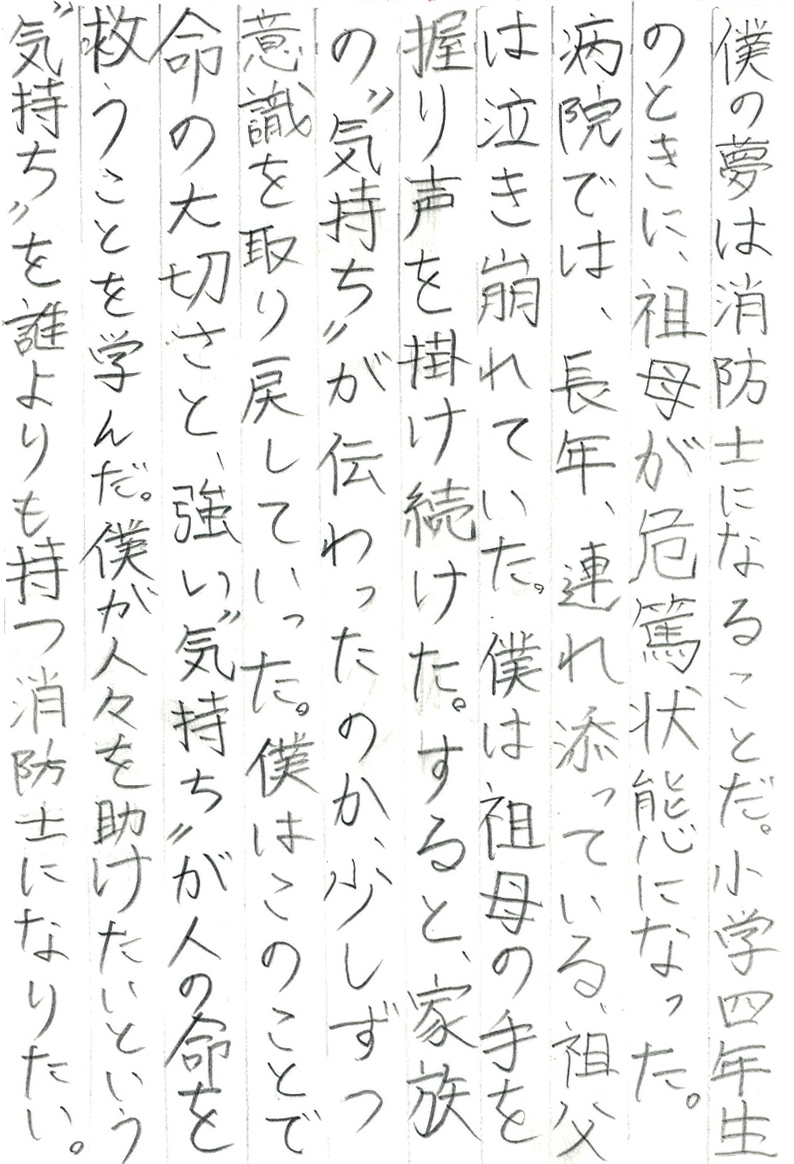 僕の夢は消防士になることだ。小学四年生
のときに、祖母が危篤状態になった。
病院では、長年、連れ添っている、祖父
は泣き崩れていた。僕は祖母の手を
握り声を掛け続けた。すると、家族
の〝気持ち〟が伝わったのか、少しずつ
意識を取り戻していった。僕はこのことで
命の大切さと、強い〝気持ち〟が人の命を
救うことを学んだ。僕が人々を助けたいという
〝気持ち〟を誰よりも持つ消防士になりたい。